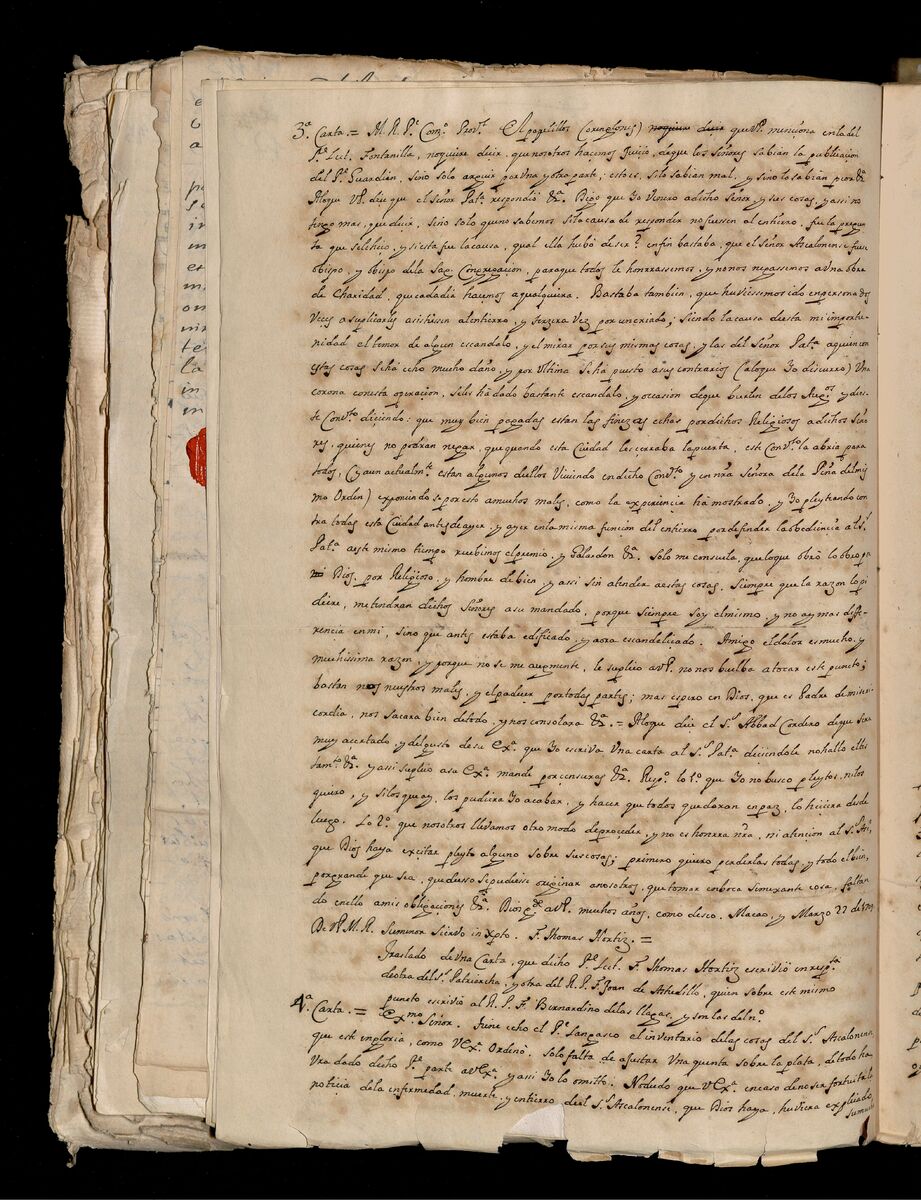 3.ª Carta.= M. R. P.e Com.o Prov.l El papelillos (orenglones) noquiere decir que VP. menciona en la del
P.e Lect. Fontanilla, noquiere decir, que nosotros hacemos Juicio, deque los Señores sabian la publicacion
del P.e Guardian, sino solo arguir por Vna y otra parte; esto es, si lo sabian mal, y sino lo sabian peor &a
Aloque VP. dice que el Señor Pat.ª respondiò &a. Digo que Yo Venero adicho Señor, y sus cosas, y assi no
tengo mas, que decir, sino solo que no sabemos si la causa de responder no fuessen al entierro, fue la pregun
ta que selehiço, y si esta fue la causa, qual ella hubo de ser? enfin bastaba, que el Señor Ascalonense fuese
obispo, y obispo dela Sag. Congregacion, paraque todos le honrrassemos, y no nos negassemos a Vna obra
de Charidad, que cadadia hacemos aqualquiera. Bastaba tambien, que huviessemos ido enpersona dos
Veces a suplicarles asistiessen al entierro, y terzera Vez por un criado; siendo la causa deesta mi importu-
nidad el temor de algun escandalo, y el mirar por sus mismas cosas, y las del Señor Pat.ª aquien con
estas cosas se ha echo mucho daño, y por Vltima se ha puesto asus contrarios (aloque Yo discurro) Vna
corona con esta operacion, seles ha dado bastante escandalo, y ocasion deque burlen delos Aug.os y des-
te Conv.to diciendo: que muy bien pagadas estan las finezas echas pordichos Religiosos adichos Seño
res, quienes no podran negar, que quando esta Ciudad les cerraba lapuerta, este Conv.to la abria para
todos, (y aun actualm.te estan algunos dellos Viviendo en dicho Conv.to y en nra Señora dela Peña del mis
mo Orden) exponiendose por esto amuchos males, como la experiencia ha mostrado, y Yo pleyteando con
tra todas esta Ciudad antes de ayer, y ayer en la misma funcion del entierro por defender la obediencia al S.r
Pat.ª a este mismo tiempo recebimos el premio, y Galardon &a. Solo me consuela, que loque obro lo obro pa
Dios, por Religioso, y hombre de bien, y assi sin atender aestas cosas, siempre que la razon lo pi
diere, me tendran dichos Señores a su mandado, porque siempre soy el mismo, y no ay mas diffe-
rencia en mi, sino que antes estaba edificado, y aora escandeliçado. Amigo el dolor es mucho, y
muchissima razon, y porque no se me augmente, le suplico aVP. no nos buelba a tocar este puncto;
bastan nos nuestros males, y el padecer por todas partes; mas espero en Dios, que es Padre de miseri
cordia, nos sacara bien de todo, y nos consolara &a. = Aloque dice el S.r Abbad Cordero deque sera
muy acertado, y del gusto de su Ex.ª que Yo escriva Vna carta al S.r Pat.ª diciendole no hallo el tes
tam.to &a. y assi suplico asu Ex.ª mande por censuras &a. Resp.o lo 1.o que Yo no busco pleytos, ni los
quiero, y si los que ay, los pudiera Yo acabar, y hacer que todos quedaran en paz, lo hiciera desde
luego. Lo 2.o que nosotros llevamos otro modo deproceder, y no es honrra nra, ni atencion al S.r Asc.
que Dios haya excitar pleyto alguno sobre sus cosas; primero quiero perderlas todas, y todo el bien,
por grande que sea, que deesso sepudiesse originar anosotros, que tomar en boca semexante cosa, faltan
do en ello a mis obligaciones &a. Dios g.de aVP. muchos años, como deseo. Macao, y Marzo 22 de 1709
De VP. M. R. Suminor Siervo in Xpto. F. Thomas Hortiz. =
Traslado de Vna Carta, que dicho P.e Lect. F. Thomas Hortiz escriviò en resp.ta
de otra del S.r Patriarcha, y otra del R. P. F. Joan de Astudillo, quien sobre este mismo
puncto escriviò al R. P. F. Bernardino de las llagas, y son las del n.o
4.ª Carta. = Ex.mo Señor. Tiene echo el P.e Sanpasco el inventario delas cosas del S.r Ascalonense,
que esté in gloria, como VEx.ª Ordenò. Solo falta de ajustar Vna quenta sobre la plata, de todo ha-
Vra dado dicho P.e parte aVEx.ª y assi Yo lo omitto. No dudo que VEx.ª en caso de no ser fortuita la
noticia dela enfermedad, muerte, y entierro del S.r Ascalonense, que Dios haya, huviera expliciado,